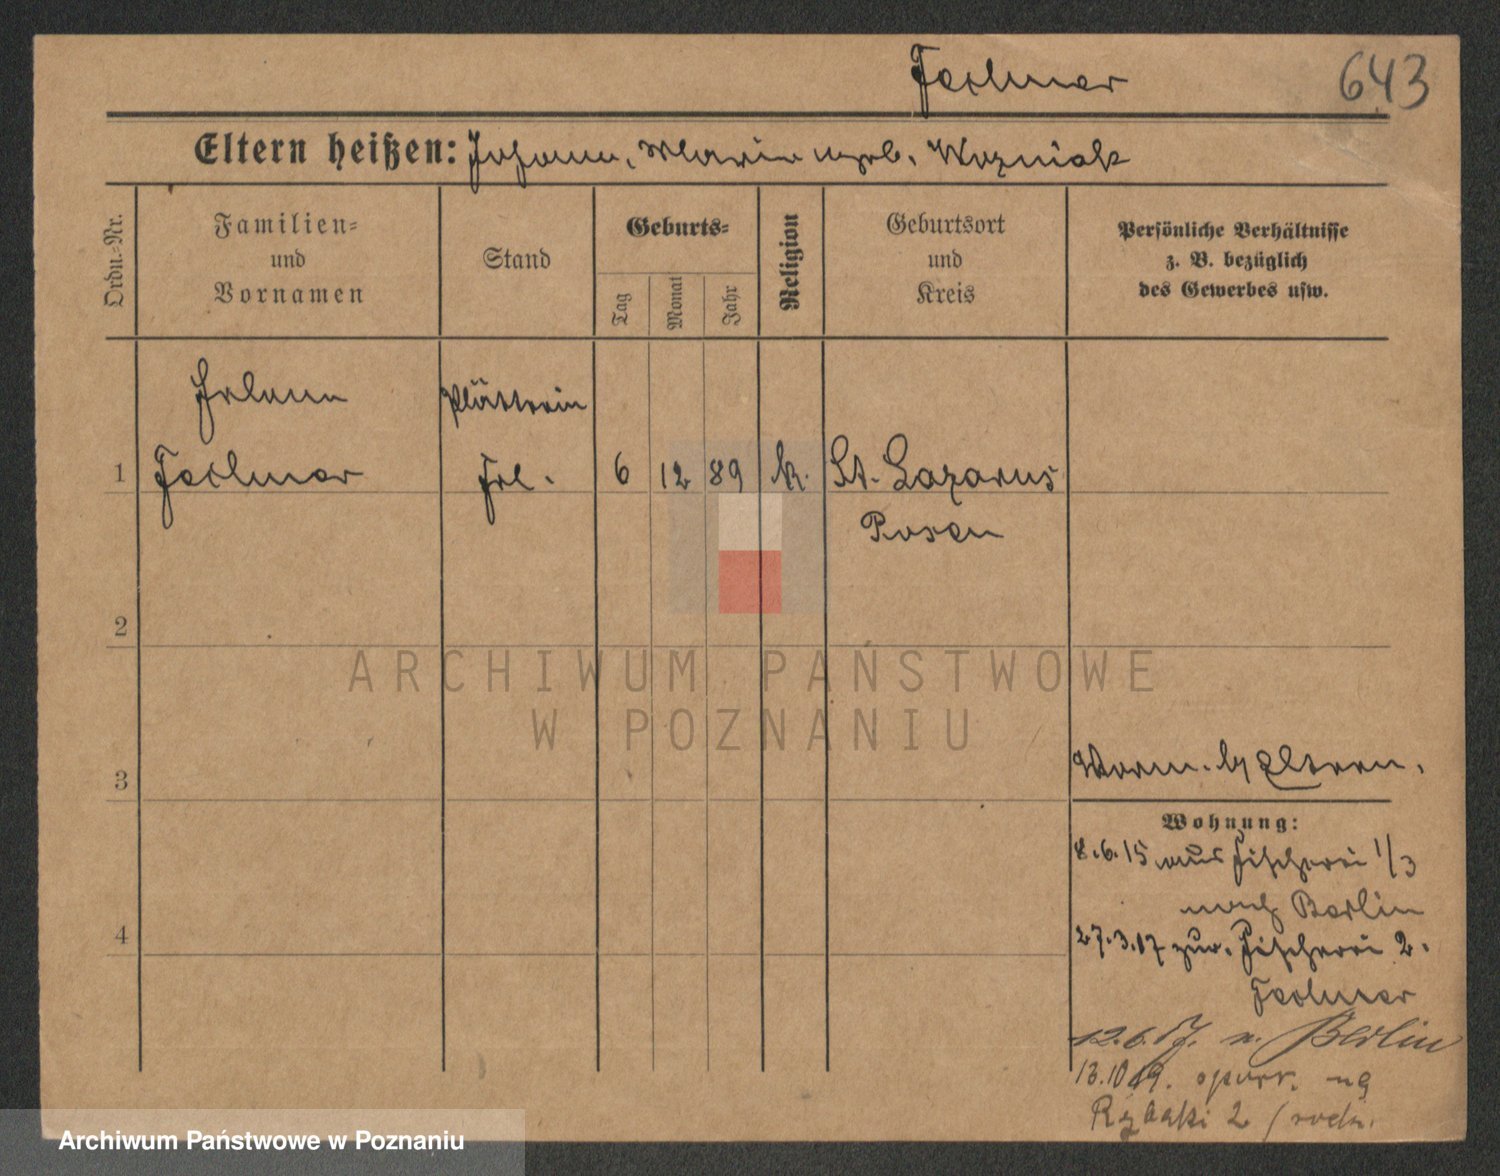 643
Eltern heißen: Johann, Maria geb. Wozniak
Ordn.-Nr.
Familien-
und
Vornamen
Stand
Geburts-
Tag
Monat
Jahr
Religion
Geburtsort
und
Kreis
Persönliche Verhältnisse
z. B. bezüglich
des Gewerbes usw.
Helene
Plätterin
1
Frl.
6
12
89
k.
St. Lazarus
Posen
2
ARCHIWUM PAŃSTWOWE
W POZNANIU
3
Eltern.
Wohnung:
8.6.15 aus Fischerei 1/3
nach Berlin
27.3.17 zur. Fischerei 2.
12.6.17. n. Berlin
13.10.19. na
Rybaki 2 / rodz.
4
Archiwum Państwowe w Poznaniu